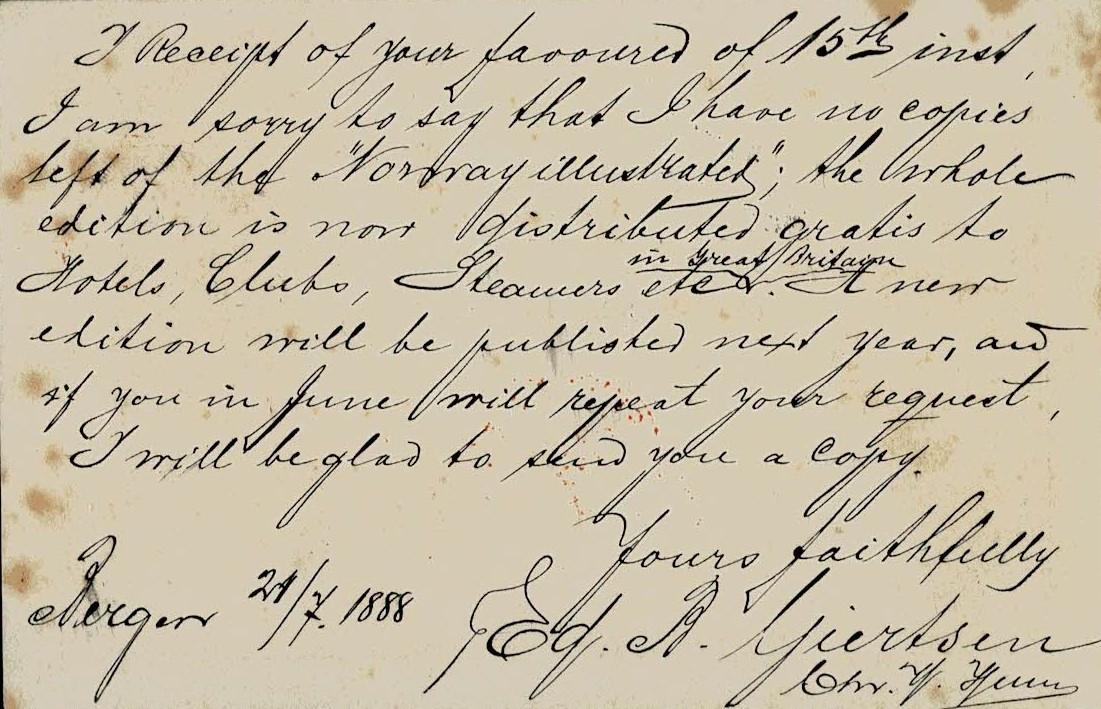 I Receipt of your favoured of 15th inst,
I am sorry to say that I have no copies
left of the "Norway illustrated"; the whole
edition is now distributed gratis to
in Great Britayn
Hotels, Clubs, Steamers etc. A new
edition will be published next year, and
if you in June will repeat your request,
I will be glad to send you a copy.
Yours faithfully
Bergen 21/7. 1888
Ed. B. Giertsen
Chr.